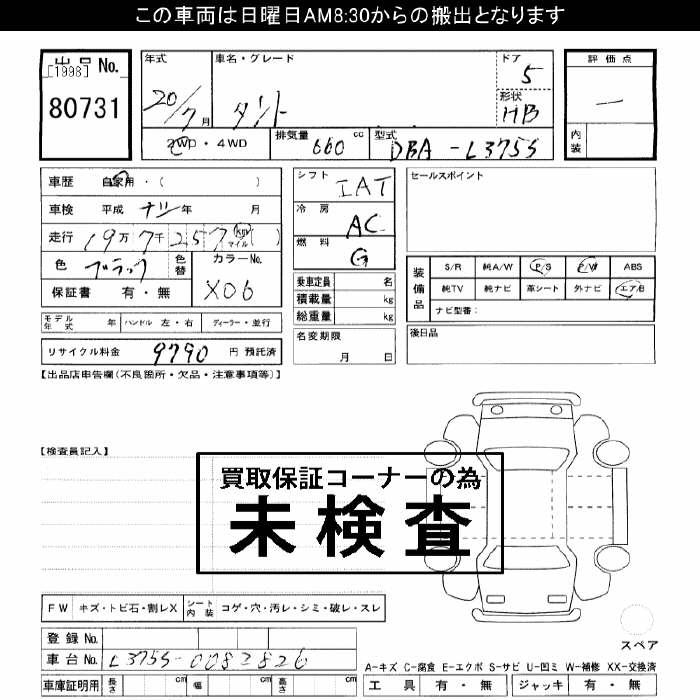 この車両は日曜日AM8:30からの搬出となります
出品 No.
[1998]
80731
年式
20/7月
車名・グレード
タント
ドア
5
形状
HB
評価点
—
内装
2WD・4WD
排気量 660 cc
型式 DBA-L375S
車歴 自家用・( )
車検 平成 ナシ 年 月
走行 19万7千257 km マイル ( )
色 ブラック 色替
カラーNo.
X06
保証書 有・無
シフト
IAT
冷房
AC
燃料
G
セールスポイント
乗車定員 名
積載量 kg
総重量 kg
装備品
S/R 純A/W P/S P/W ABS
純TV 純ナビ 革シート 外ナビ エアB
ナビ型番:
モデル年式 年 ハンドル 左・右 ディーラー・並行
名変期限
月 日
後日品
リサイクル料金 9790 円 預託済
【出品店申告欄(不良箇所・欠品・注意事項等)】
【検査員記入】
買取保証コーナーの為
未検査
FW キズ・トビ石・割レX シート内装 コゲ・穴・汚レ・シミ・破レ・スレ
スペア
登録 No.
車台 No. L375S-0082826
車庫証明用 長さ cm 幅 cm 高さ cm
A-キズ C-腐食 E-エクボ S-サビ U-凹ミ W-補修 XX-交換済
工具 有・無 ジャッキ 有・無